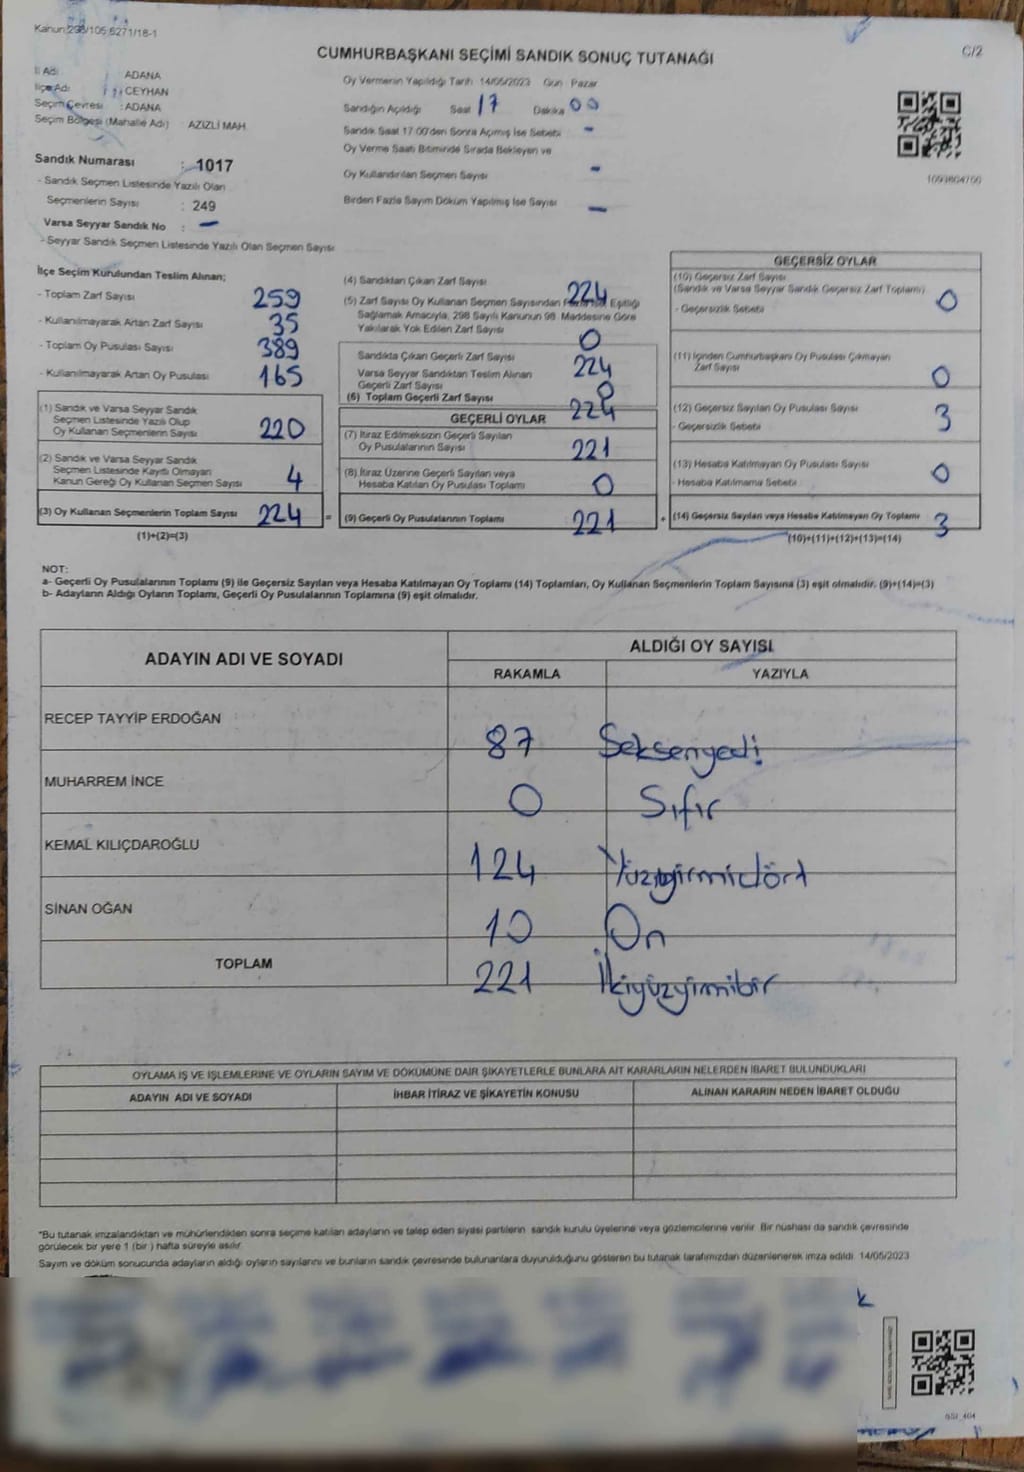 Kanun:298/105,6271/18-1
CUMHURBAŞKANI SEÇİMİ SANDIK SONUÇ TUTANAĞI
C/2
İl Adı : ADANA
İlçe Adı : CEYHAN
Seçim Çevresi : ADANA
Seçim Bölgesi (Mahalle Adı) : AZİZLİ MAH.
Oy Vermenin Yapıldığı Tarih 14/05/2023 Gün Pazar
Sandığın Açıldığı Saat 17 Dakika 00
Sandık Saat 17:00'den Sonra Açılmış İse Sebebi -
Oy Verme Saati Bitiminde Sırada Bekleyen ve
Oy Kullandırılan Seçmen Sayısı -
Birden Fazla Sayım Döküm Yapılmış İse Sayısı -
1093804700
Sandık Numarası : 1017
- Sandık Seçmen Listesinde Yazılı Olan
Seçmenlerin Sayısı : 249
Varsa Seyyar Sandık No : -
- Seyyar Sandık Seçmen Listesinde Yazılı Olan Seçmen Sayısı
İlçe Seçim Kurulundan Teslim Alınan;
- Toplam Zarf Sayısı 259
- Kullanılmayarak Artan Zarf Sayısı 35
- Toplam Oy Pusulası Sayısı 389
- Kullanılmayarak Artan Oy Pusulası 165
(1) Sandık ve Varsa Seyyar Sandık
Seçmen Listesinde Yazılı Olup
Oy Kullanan Seçmenlerin Sayısı 220
(2) Sandık ve Varsa Seyyar Sandık
Seçmen Listesinde Kayıtlı Olmayan
Kanun Gereği Oy Kullanan Seçmen Sayısı 4
(3) Oy Kullanan Seçmenlerin Toplam Sayısı 224 =
(1)+(2)=(3)
(4) Sandıktan Çıkan Zarf Sayısı 224
(5) Zarf Sayısı Oy Kullanan Seçmen Sayısından Fazla İse, Eşitliği
Sağlamak Amacıyla, 298 Sayılı Kanunun 98. Maddesine Göre
Yakılarak Yok Edilen Zarf Sayısı 0
Sandıkta Çıkan Geçerli Zarf Sayısı 224
Varsa Seyyar Sandıktan Teslim Alınan
Geçerli Zarf Sayısı 0
(6) Toplam Geçerli Zarf Sayısı 224
GEÇERLİ OYLAR
(7) İtiraz Edilmeksizin Geçerli Sayılan
Oy Pusulalarının Sayısı 221
(8) İtiraz Üzerine Geçerli Sayılan veya
Hesaba Katılan Oy Pusulası Toplamı 0
(9) Geçerli Oy Pusulalarının Toplamı 221 +
GEÇERSİZ OYLAR
(10) Geçersiz Zarf Sayısı
(Sandık ve Varsa Seyyar Sandık Geçersiz Zarf Toplamı)
- Geçersizlik Sebebi 0
(11) İçinden Cumhurbaşkanı Oy Pusulası Çıkmayan
Zarf Sayısı 0
(12) Geçersiz Sayılan Oy Pusulası Sayısı 3
- Geçersizlik Sebebi
(13) Hesaba Katılmayan Oy Pusulası Sayısı 0
- Hesaba Katılmama Sebebi
(14) Geçersiz Sayılan veya Hesaba Katılmayan Oy Toplamı 3
(10)+(11)+(12)+(13)=(14)
NOT:
a- Geçerli Oy Pusulalarının Toplamı (9) ile Geçersiz Sayılan veya Hesaba Katılmayan Oy Toplamı (14) Toplamları, Oy Kullanan Seçmenlerin Toplam Sayısına (3) eşit olmalıdır. (9)+(14)=(3)
b- Adayların Aldığı Oyların Toplamı, Geçerli Oy Pusulalarının Toplamına (9) eşit olmalıdır.
ADAYIN ADI VE SOYADI
ALDIĞI OY SAYISI
RAKAMLA YAZIYLA
RECEP TAYYİP ERDOĞAN 87 Seksenyedi
MUHARREM İNCE 0 Sıfır
KEMAL KILIÇDAROĞLU 124 Yüzyirmidört
SİNAN OĞAN 10 On
TOPLAM 221 İkiyüzyirmibir
OYLAMA İŞ VE İŞLEMLERİNE VE OYLARIN SAYIM VE DÖKÜMÜNE DAİR ŞİKAYETLERLE BUNLARA AİT KARARLARIN NELERDEN İBARET BULUNDUKLARI
ADAYIN ADI VE SOYADI İHBAR İTİRAZ VE ŞİKAYETİN KONUSU ALINAN KARARIN NEDEN İBARET OLDUĞU
*Bu tutanak imzalandıktan ve mühürlendikten sonra seçime katılan adayların ve talep eden siyasi partilerin sandık kurulu üyelerine veya gözlemcilerine verilir. Bir nüshası da sandık çevresinde
görülecek bir yere 1 (bir ) hafta süreyle asılır.
Sayım ve döküm sonucunda adayların aldığı oyların sayılarını ve bunların sandık çevresinde bulunanlara duyurulduğunu gösteren bu tutanak tarafımızdan düzenlenerek imza edildi. 14/05/2023